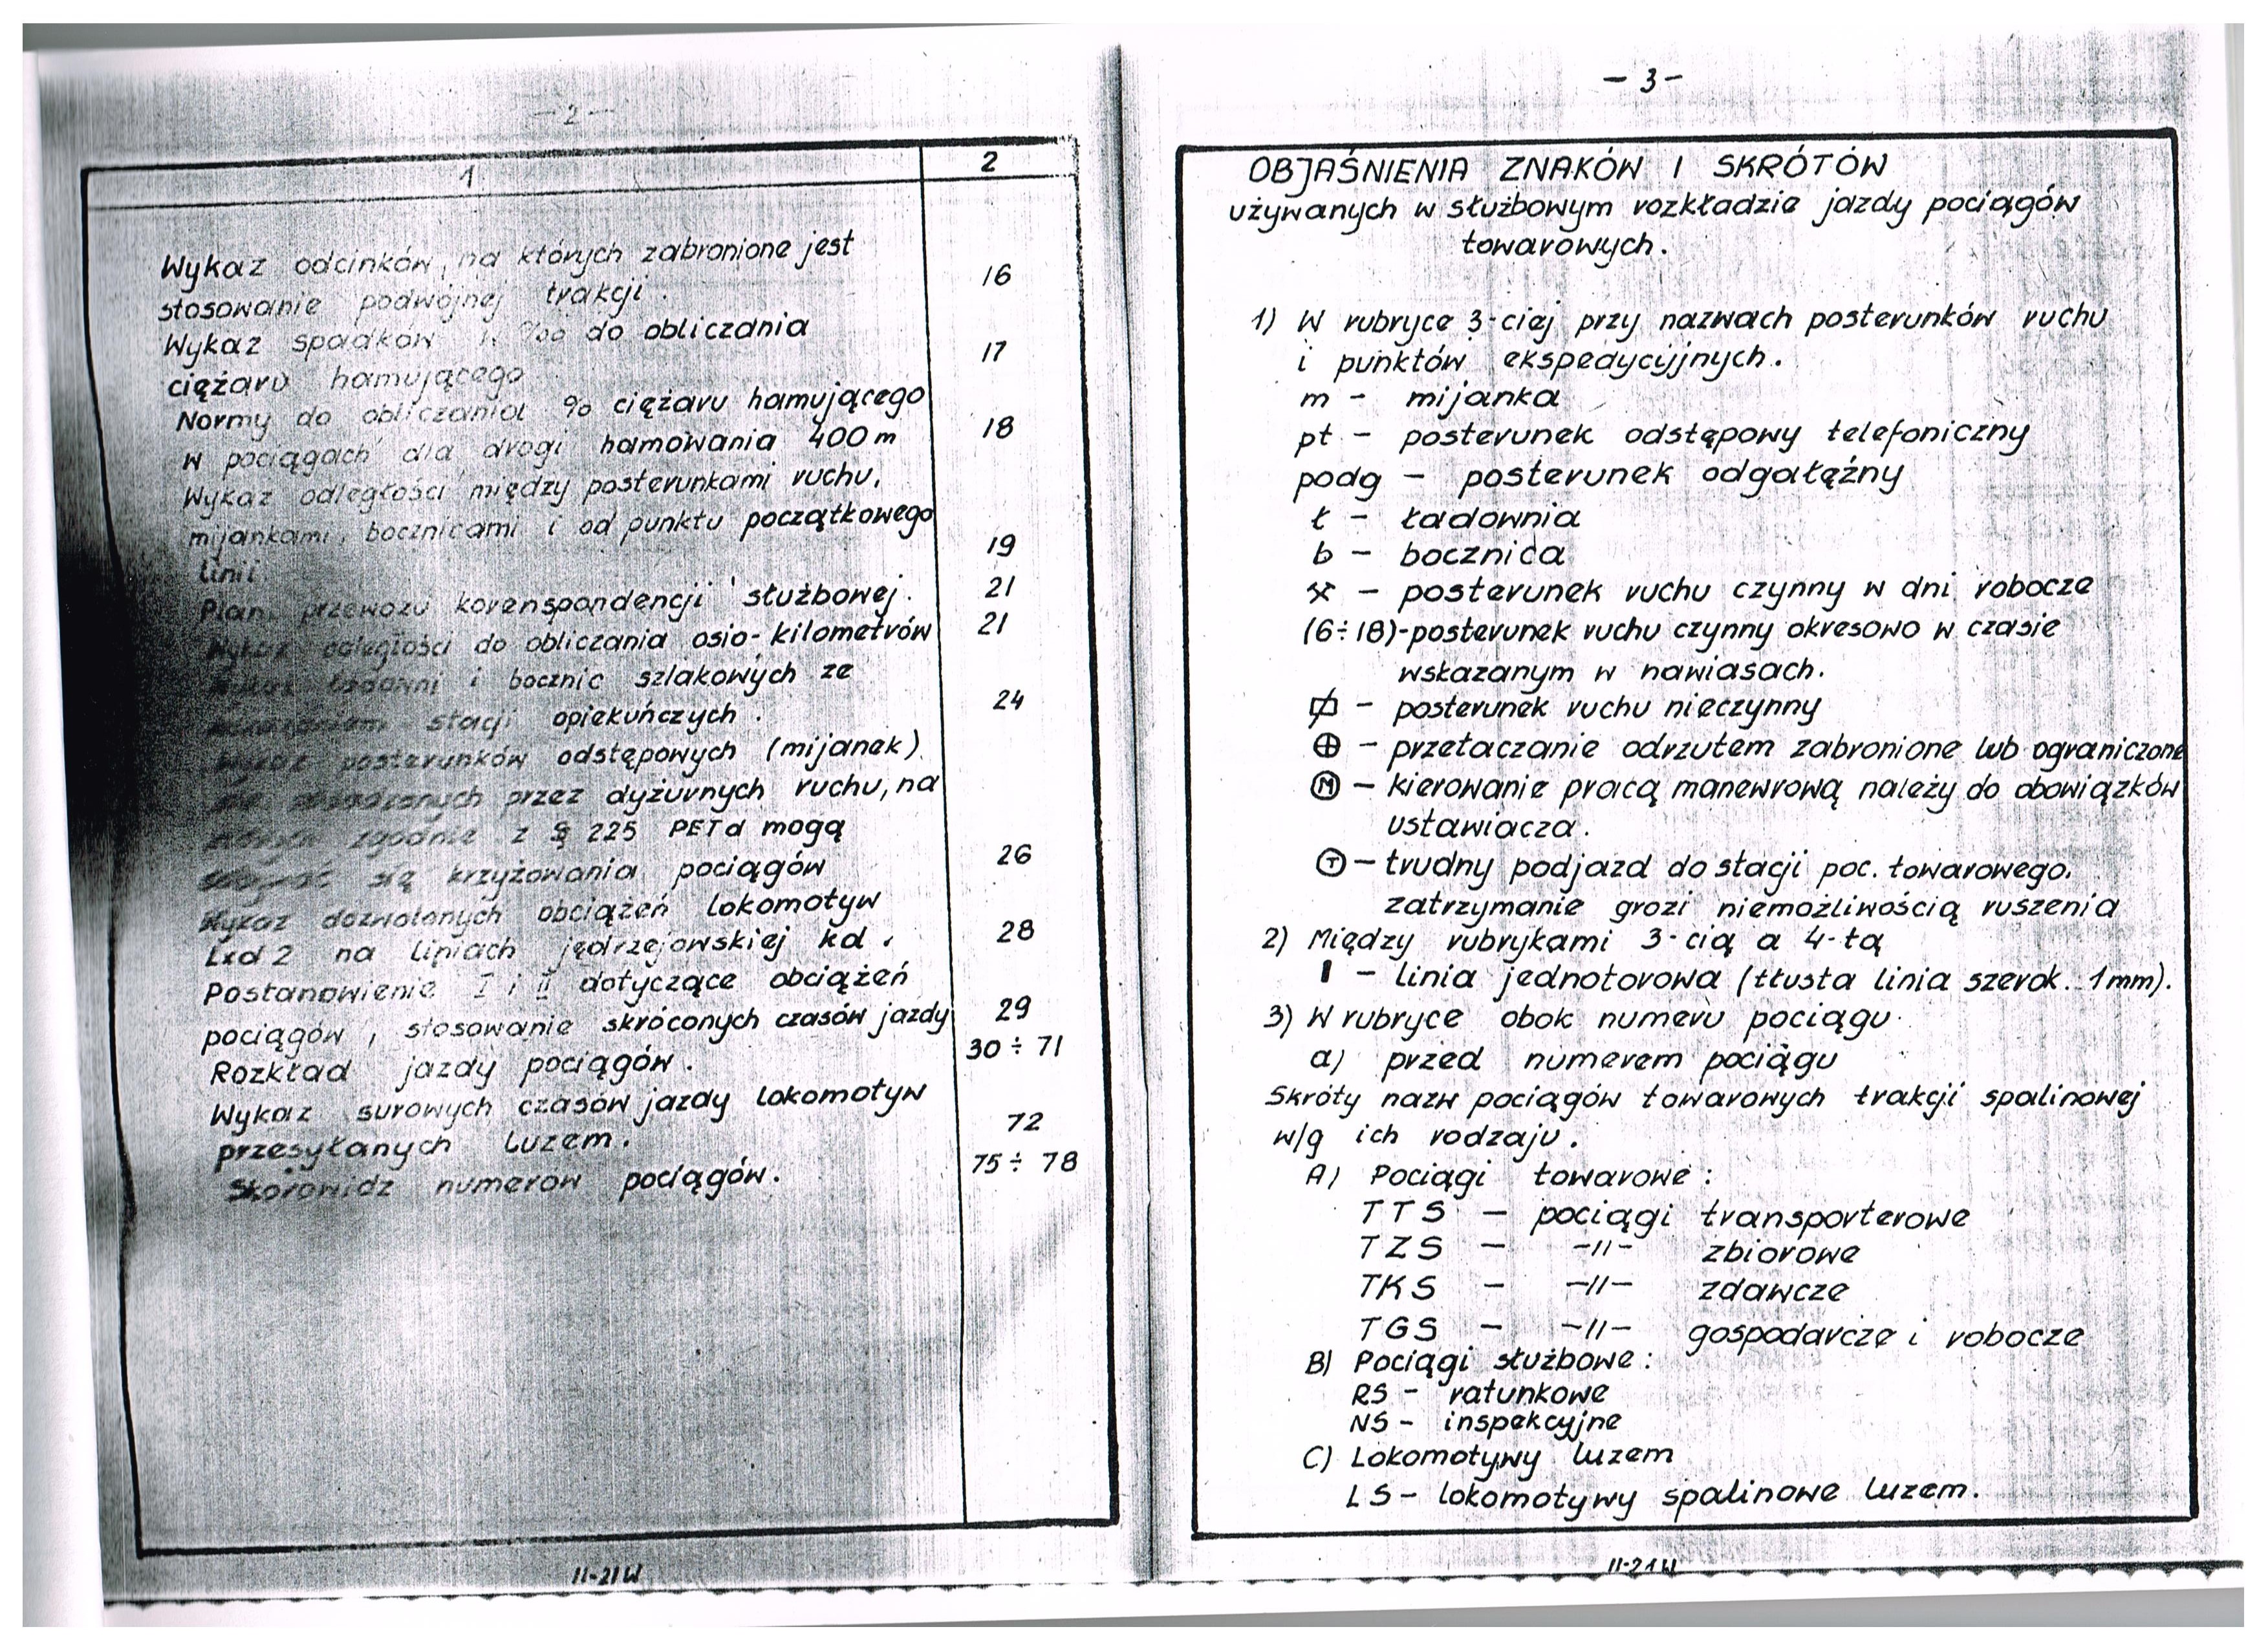 - 2 -
1
2
Wykaz odcinków, na których zabronione jest
stosowanie podwójnej trakcji.
16
Wykaz spadków w ‰ do obliczania
ciężaru hamującego
17
Normy do obliczania % ciężaru hamującego
w pociągach dla drogi hamowania 400 m
18
Wykaz odległości między posterunkami ruchu,
mijankami, bocznicami i od punktu początkowego
linii
19
Plan przewozu korenspondencji służbowej.
21
odległości do obliczania osio-kilometrów
21
ładowni i bocznic szlakowych ze
stacji opiekuńczych.
24
posterunków odstępowych (mijanek)
przez dyżurnych ruchu, na
zgodnie z § 225 PETd mogą
się krzyżowania pociągów
26
Wykaz dozwolonych obciążeń lokomotyw
Lxd 2 na liniach jędrzejowskiej kd.
28
Postanowienie I i II dotyczące obciążeń
pociągów, stosowanie skróconych czasów jazdy
29
Rozkład jazdy pociągów.
30 ÷ 71
Wykaz surowych czasów jazdy lokomotyw
przesyłanych luzem.
72
Skorowidz numerów pociągów.
75 ÷ 78
II-21W
- 3 -
OBJAŚNIENIA ZNAKÓW I SKRÓTÓW
używanych w służbowym rozkładzie jazdy pociągów
towarowych.
1) W rubryce 3-ciej przy nazwach posterunków ruchu
i punktów ekspedycyjnych.
m - mijanka
pt - posterunek odstępowy telefoniczny
podg - posterunek odgałęźny
ł - ładownia
b - bocznica
⚒ - posterunek ruchu czynny w dni robocze
(6÷18)-posterunek ruchu czynny okresowo w czasie
wskazanym w nawiasach.
- posterunek ruchu nieczynny
⊕ - przetaczanie odrzutem zabronione lub ograniczone
Ⓜ - kierowanie pracą manewrową należy do obowiązków
ustawiacza.
Ⓣ - trudny podjazd do stacji poc. towarowego,
zatrzymanie grozi niemożliwością ruszenia
2) Między rubrykami 3-cią a 4-tą
I - linia jednotorowa (tłusta linia szerok. 1mm).
3) W rubryce obok numeru pociągu
a) przed numerem pociągu
Skróty nazw pociągów towarowych trakcji spalinowej
w/g ich rodzaju.
A) Pociągi towarowe:
TTS - pociągi transporterowe
TZS - -II- zbiorowe
TKS - -II- zdawcze
TGS - -II- gospodarcze i robocze
B) Pociągi służbowe:
RS - ratunkowe
NS - inspekcyjne
C) Lokomotywy luzem
LS - lokomotywy spalinowe luzem.
II-21W